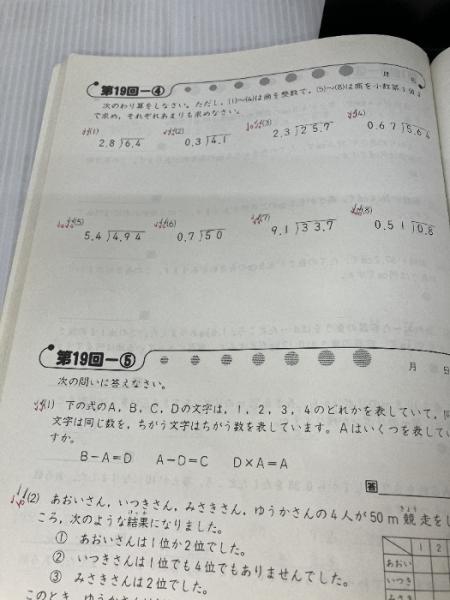 第19回－④
月
次のわり算をしなさい。ただし，(1)～(4)は商を整数で，(5)～(8)は商を小数第1位ま
で求め，それぞれあまりも求めなさい。
(1) (2) (3) (4)
2.8)6.4 0.3)4.1 2.3)25.7 0.67)5.64
(5) (6) (7) (8)
5.4)4.94 0.7)50 9.1)33.7 0.51)0.8
第19回－⑤
月
次の問いに答えなさい。
(1) 下の式のA，B，C，Dの文字は，1，2，3，4のどれかを表していて，
文字は同じ数を，ちがう文字はちがう数を表しています。Aはいくつを表してい
すか。
B－A＝D A－D＝C D×A＝A
答
(2) あおいさん，いつきさん，みさきさん，ゆうかさんの4人が50m競走をし
きょう
ころ，次のような結果になりました。
けっか
① あおいさんは1位か2位でした。
② いつきさんは1位でも4位でもありませんでした。
③ みさきさんは2位でした。
このとき，ゆうかさんは
1 2
あおい
いつき
みさき